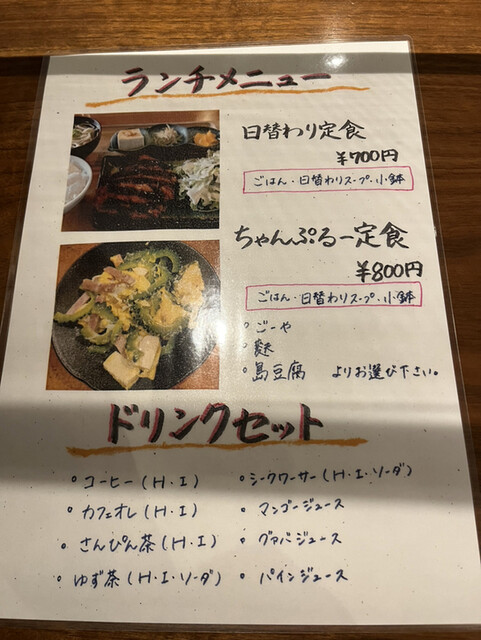 ランチメニュー
日替わり定食
¥700円
ごはん・日替わりスープ・小鉢
ちゃんぷるー定食
¥800円
ごはん・日替わりスープ・小鉢
°ごーや
°麩
°島豆腐 よりお選び下さい。
ドリンクセット
°コーヒー(H・I)
°カフェオレ(H・I)
°さんぴん茶(H・I)
°ゆず茶(H・I・ソーダ)
°シークワーサー(H・I・ソーダ)
°マンゴージュース
°グァバジュース
°パインジュース